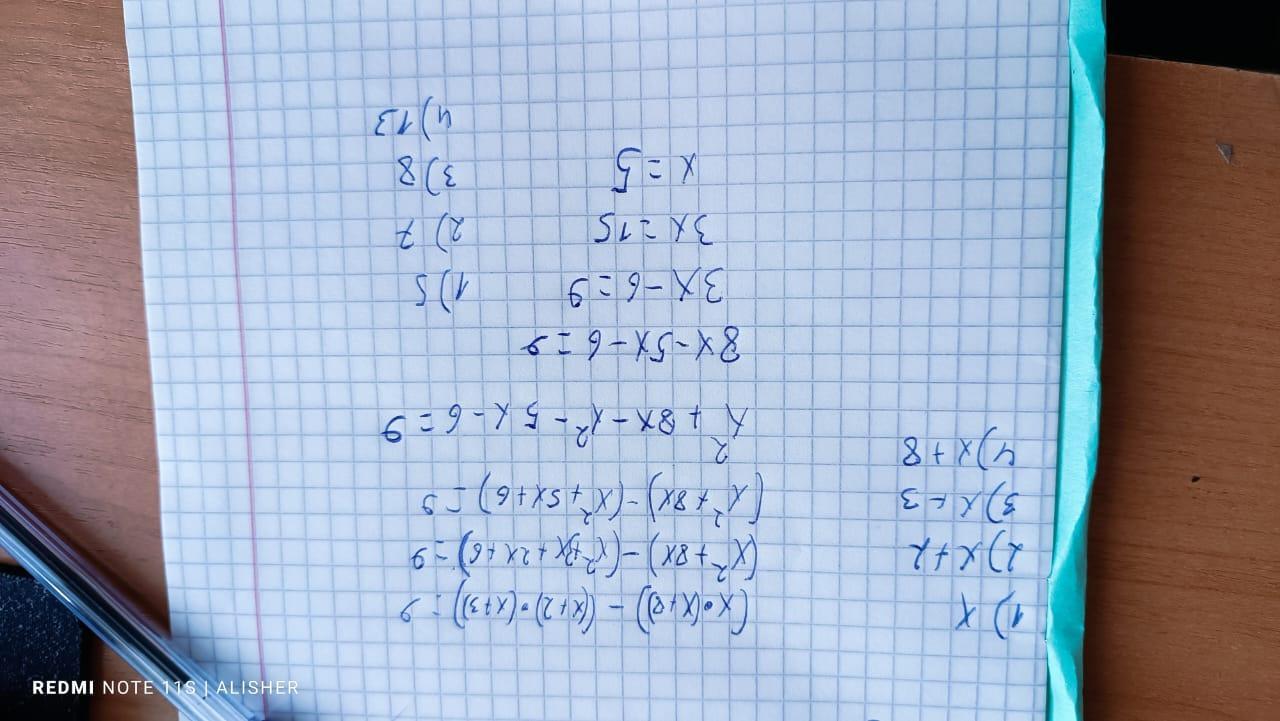 1) x
2) x + 2
3) x + 3
4) x + 8
(x•(x+8)) - ((x+2)•(x+3)) = 9
(x²+8x) - (x²+3x+2x+6) = 9
(x²+8x) - (x²+5x+6) = 9
x² + 8x - x² - 5x - 6 = 9
8x - 5x - 6 = 9
3x - 6 = 9
3x = 15
x = 5
1) 5
2) 7
3) 8
4) 13
REDMI NOTE 11S | ALISHER